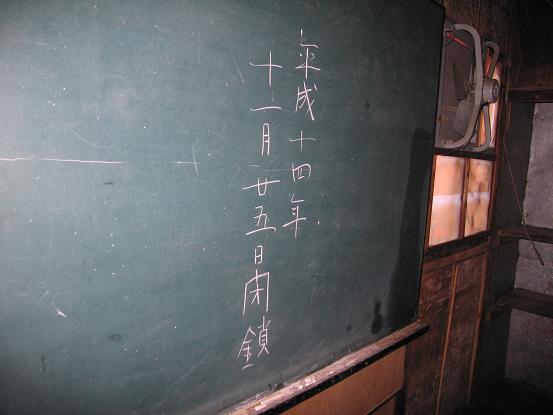 平成十四年
十一月廿五日閉鎖